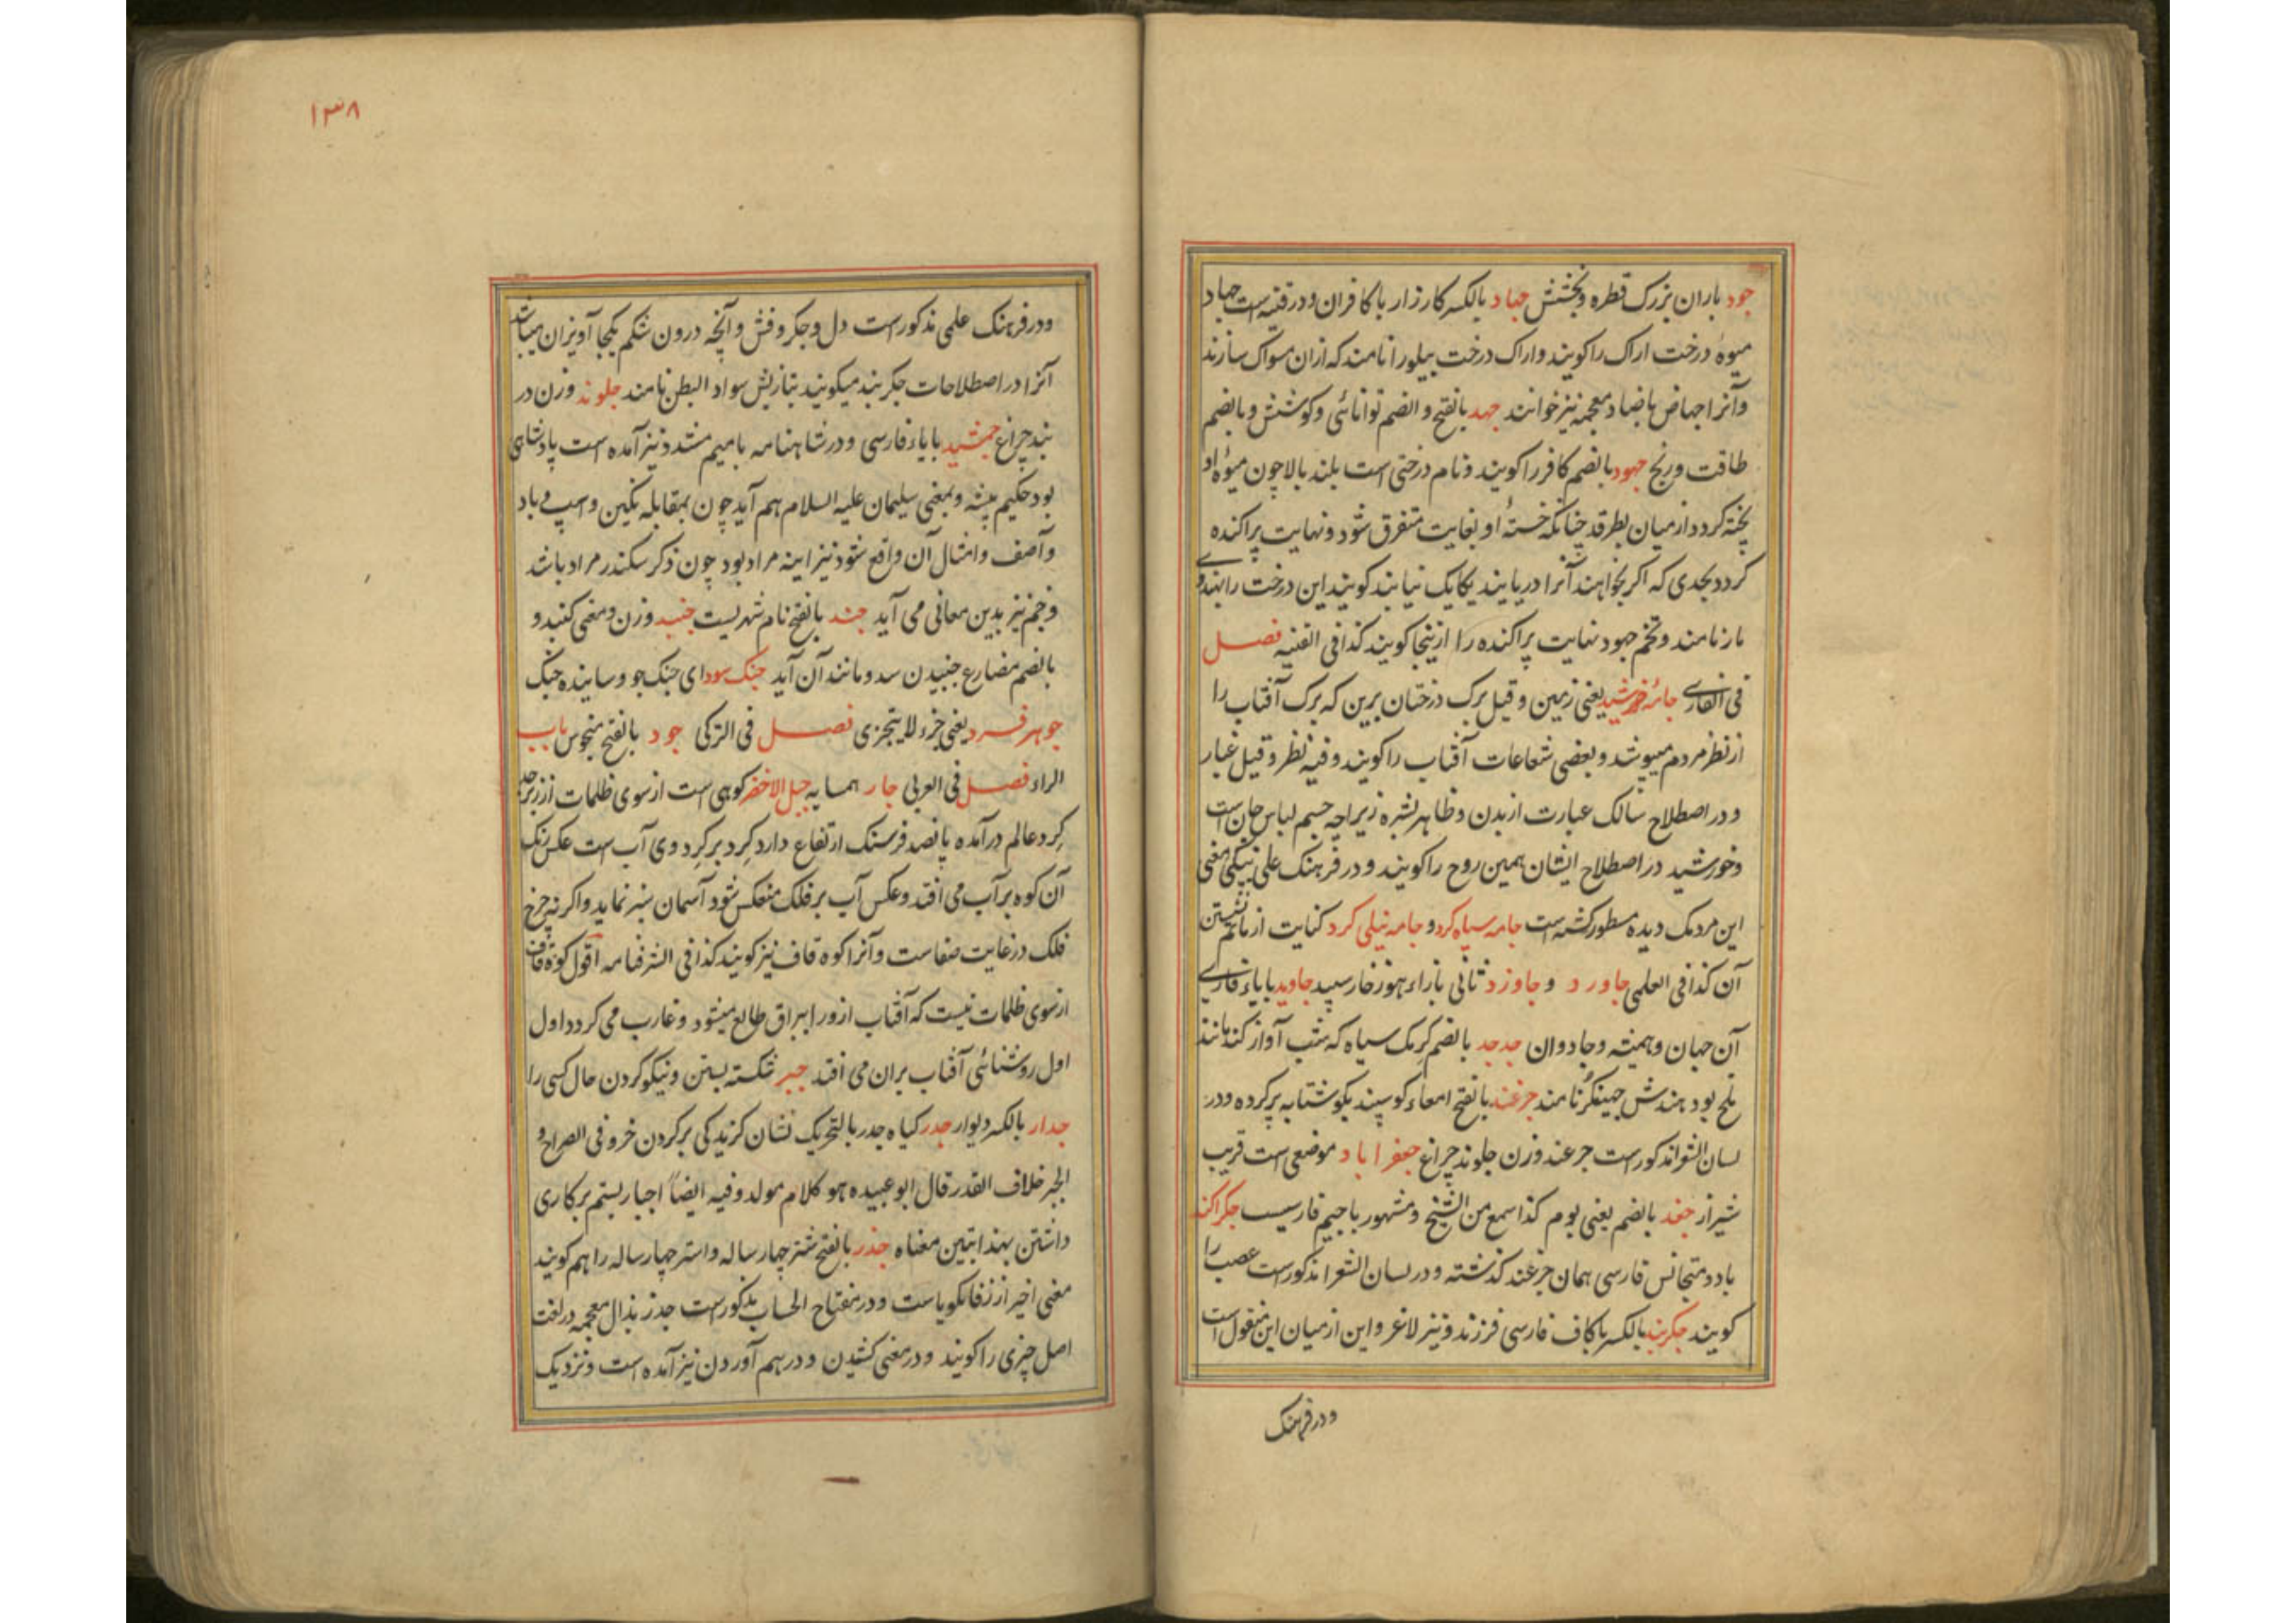 جود باران بزرک قطره و بخشش جهاد بالکسر کارزار با کافران و در قنیه است جهاد
میوهٔ درخت اراک را کویند و اراک درخت پیلو را نامند که ازان مسواک سازند
و آنرا جهاض با ضاد معجمه نیز خوانند جهد بالفتح و الضم توانائی و کوشش و بالضم
طاقت و رنج جهود بالضم کافر را کویند و نام درختی است بلند بالا چون میوهٔ او
پخته کردد از میان بطرقد چنانکه خستهٔ او بغایت متفرق شود و نهایت پراکنده
کردد بحدی که اکر بخواهند آنرا دریابند یکایک نیابند کویند این درخت را
مارنامند و تخم جهود نهایت پراکنده را ازینجا کویند کذا فی القنیه فصل
فی الفارسی جامهٔ خورشید یعنی زمین و قیل برک درختان برین که برک آفتاب را
از نظر مردم میپوشد و بعضی شعاعات آفتاب را کویند و فیه نظر و قیل غبار
و در اصطلاح سالک عبارت از بدن و ظاهر بشره زیراچه جسم لباس جان است
و خورشید در اصطلاح ایشان همین روح را کویند و در فرهنک علی نیکی معنی
این مردمک دیده مسطور کشته است جامه سیاه کرد و جامه نیلی کرد کنایت از ماتم نشستن
آن کذا فی العلمی جاورد و جاوزد ثانی بازاء هوز خار سپید جاوید بایاء فارسی
آن جهان و همیشه و جادوان جدجد بالضم کرمک سیاه که شب آواز کند مانند
ملخ بود هندش جهینکر نامند جرغند بالفتح امعاء کوسپند بکوشتابه پر کرده و در
لسان الشعرا مذکور است جرعند وزن جلوند چراغ جعفراباد موضعی است قریب
شیراز جغد بالضم یعنی بوم کذا سمع من الشیخ و مشهور باجیم فارسیست جکراکند
بادو متجانس فارسی همان جرغند کذشته و در لسان الشعرا مذکور است عصب را
کویند جکربند بالکسر باکاف فارسی فرزند و نیز لاغر و این از میان این منقول است
و در فرهنک
۱۳۸
و در فرهنک علمی مذکور است دل و جکر و فش و آنچه درون شکم یکجا آویزان میباشد
آنرا در اصطلاحات جکربند میکویند بتازیش سواد البطن نامند جلوند وزن در
بند چراغ جمشید بایاء فارسی و در شاهنامه بامیم مشدد نیز آمده است پادشاهی
بود حکیم پیشه و بمعنی سلیمان علیه السلام هم آید چون بمقابله نکین و اسپ باد
و آصف و امثال آن واقع شود نیز اینه مراد بود چون ذکر سکندر مراد باشد
و جم نیز بدین معانی می آید جند بالفتح نام شهریست جنبد وزن و معنی کنبد و
بالضم مضارع جنبیدن سد و مانند آن آید جنک سود ای جنک جو و ساینده جنک
جوهر فرد یعنی جزء لایتجزی فصل فی الترکی جود بالفتح منحوس باب
الراء فصل فی العربی جار همسایه جبل الاخضر کوهی است از سوی ظلمات از زبرجد
کرد عالم درآمده پانصد فرسنک ارتفاع دارد کرد بر کرد وی آب است عکس رنک
آن کوه بر آب می افتد و عکس آب بر فلک منعکس شود آسمان سبز نماید و اکر نه چرخ
فلک در غایت صفاست و آنرا کوه قاف نیز کویند کذا فی الشرفنامه اقول کوه قاف
از سوی ظلمات نیست که آفتاب از ورا براق طالع میشود و غارب می کردد اول
اول روشنائی آفتاب بران می افتد جبر شکسته بستن و نیکو کردن حال کسی را
جدار بالکسر دیوار جدر کیاه جدر بالتحریک نشان کزیدکی بر کردن خر و فی الصراح و
الجبر خلاف القدر قال ابو عبیده هو کلام مولد و فیه ایضاً اجبار بستم بر کاری
داشتن بهذا تبین معناه جذر بالفتح شتر چهار ساله و استر چهار ساله را هم کویند
معنی اخیر از زفانکویاست و در مفتاح الحساب مذکور است جذر بذال معجمه در لغت
اصل چیزی را کویند و در معنی کشیدن و درهم آوردن نیز آمده است و نزدیک